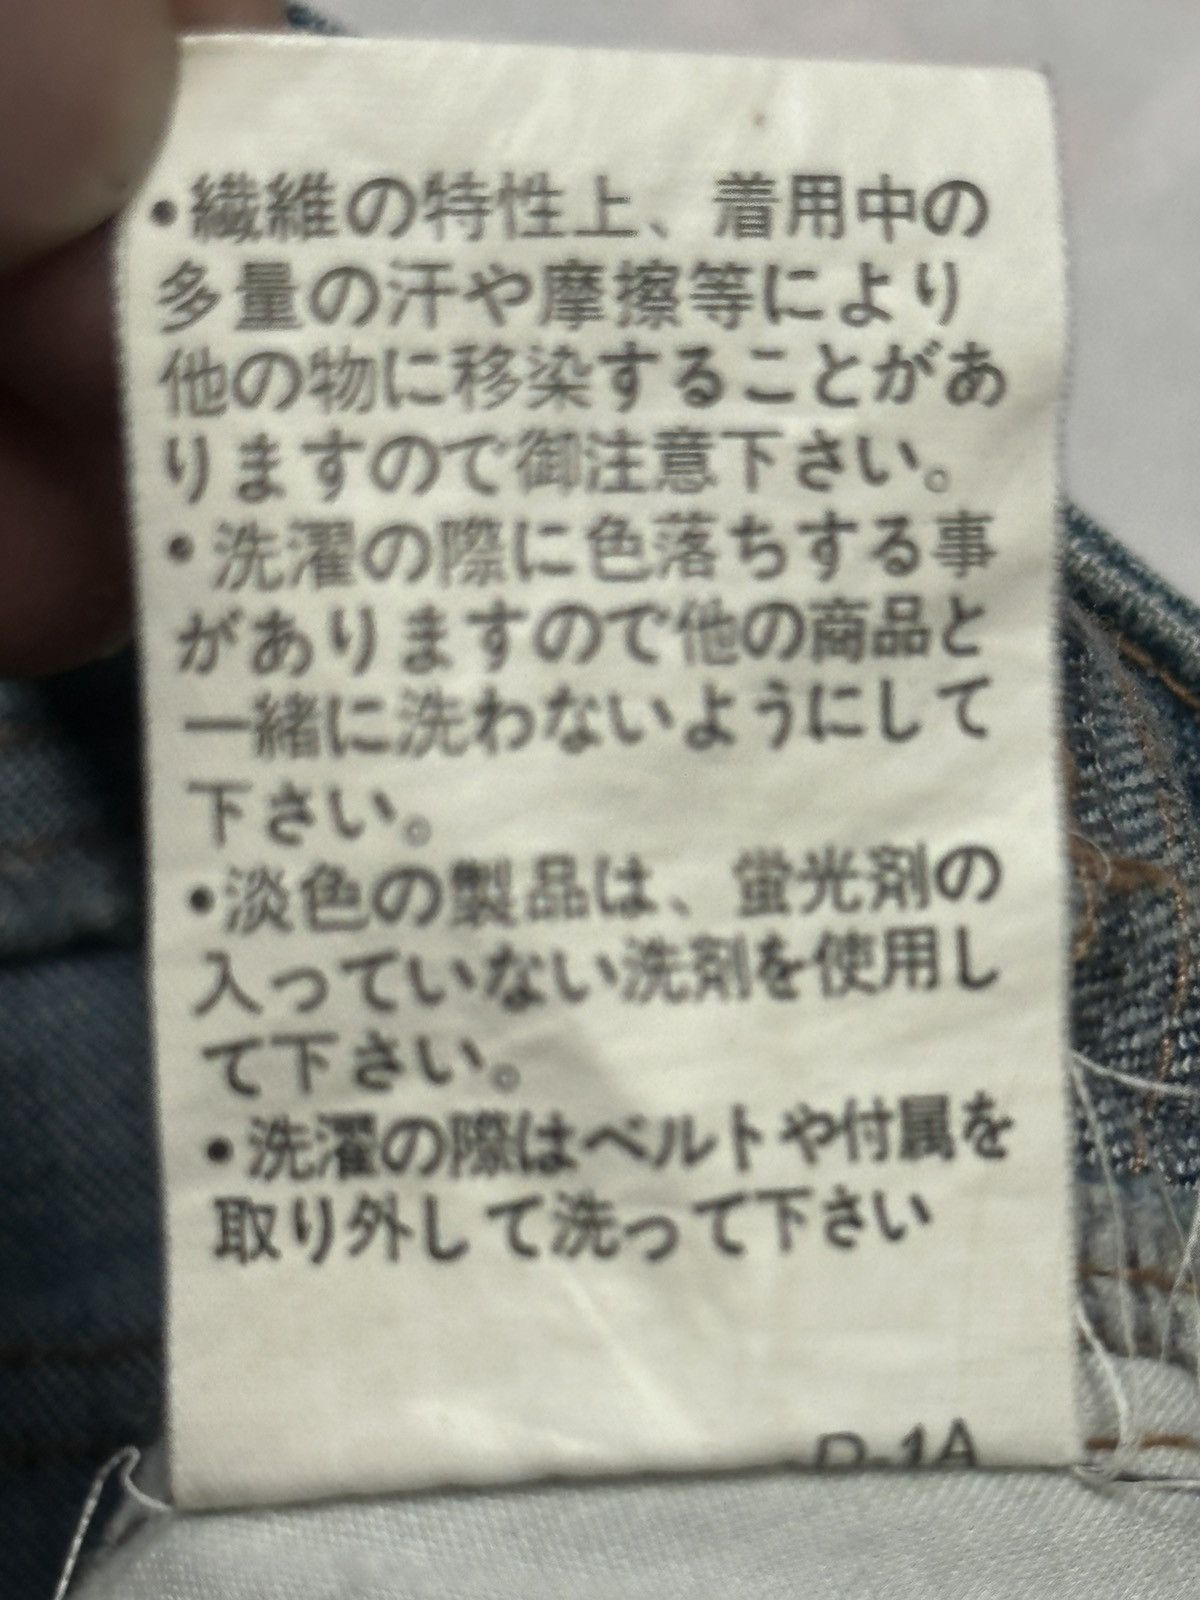 •繊維の特性上、着用中の
多量の汗や摩擦等により
他の物に移染することがあ
りますので御注意下さい。
•洗濯の際に色落ちする事
がありますので他の商品と
一緒に洗わないようにして
下さい。
•淡色の製品は、蛍光剤の
入っていない洗剤を使用し
て下さい。
•洗濯の際はベルトや付属を
取り外して洗って下さい
D-1A